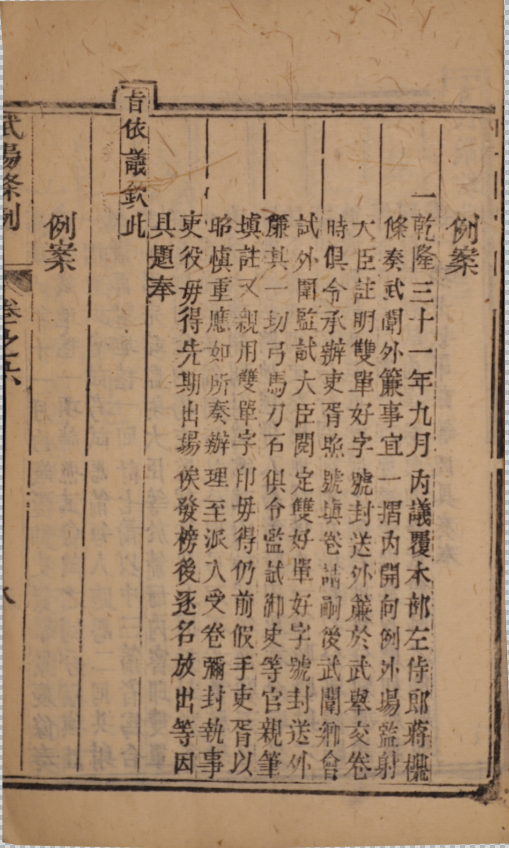 例案
一乾隆三十一年九月內議覆本部左侍郎蔣檙
條奏武闈外簾事宜一摺內開向例外場監射
大臣註明雙單好字號封送外簾於武舉交卷
時俱令承辦吏胥照號填卷請嗣後武闈鄉會
試外闈監試大臣閱定雙好單好字號封送外
簾其一切弓馬刀石俱令監試御史等官親筆
填註又親用雙單字印毋得仍前假手吏胥以
昭慎重應如所奏辦理至派入受卷彌封執事
吏役毋得先期出場俟發榜後逐名放出等因
具題奉
旨依議欽此
例案
武場條例
卷之六